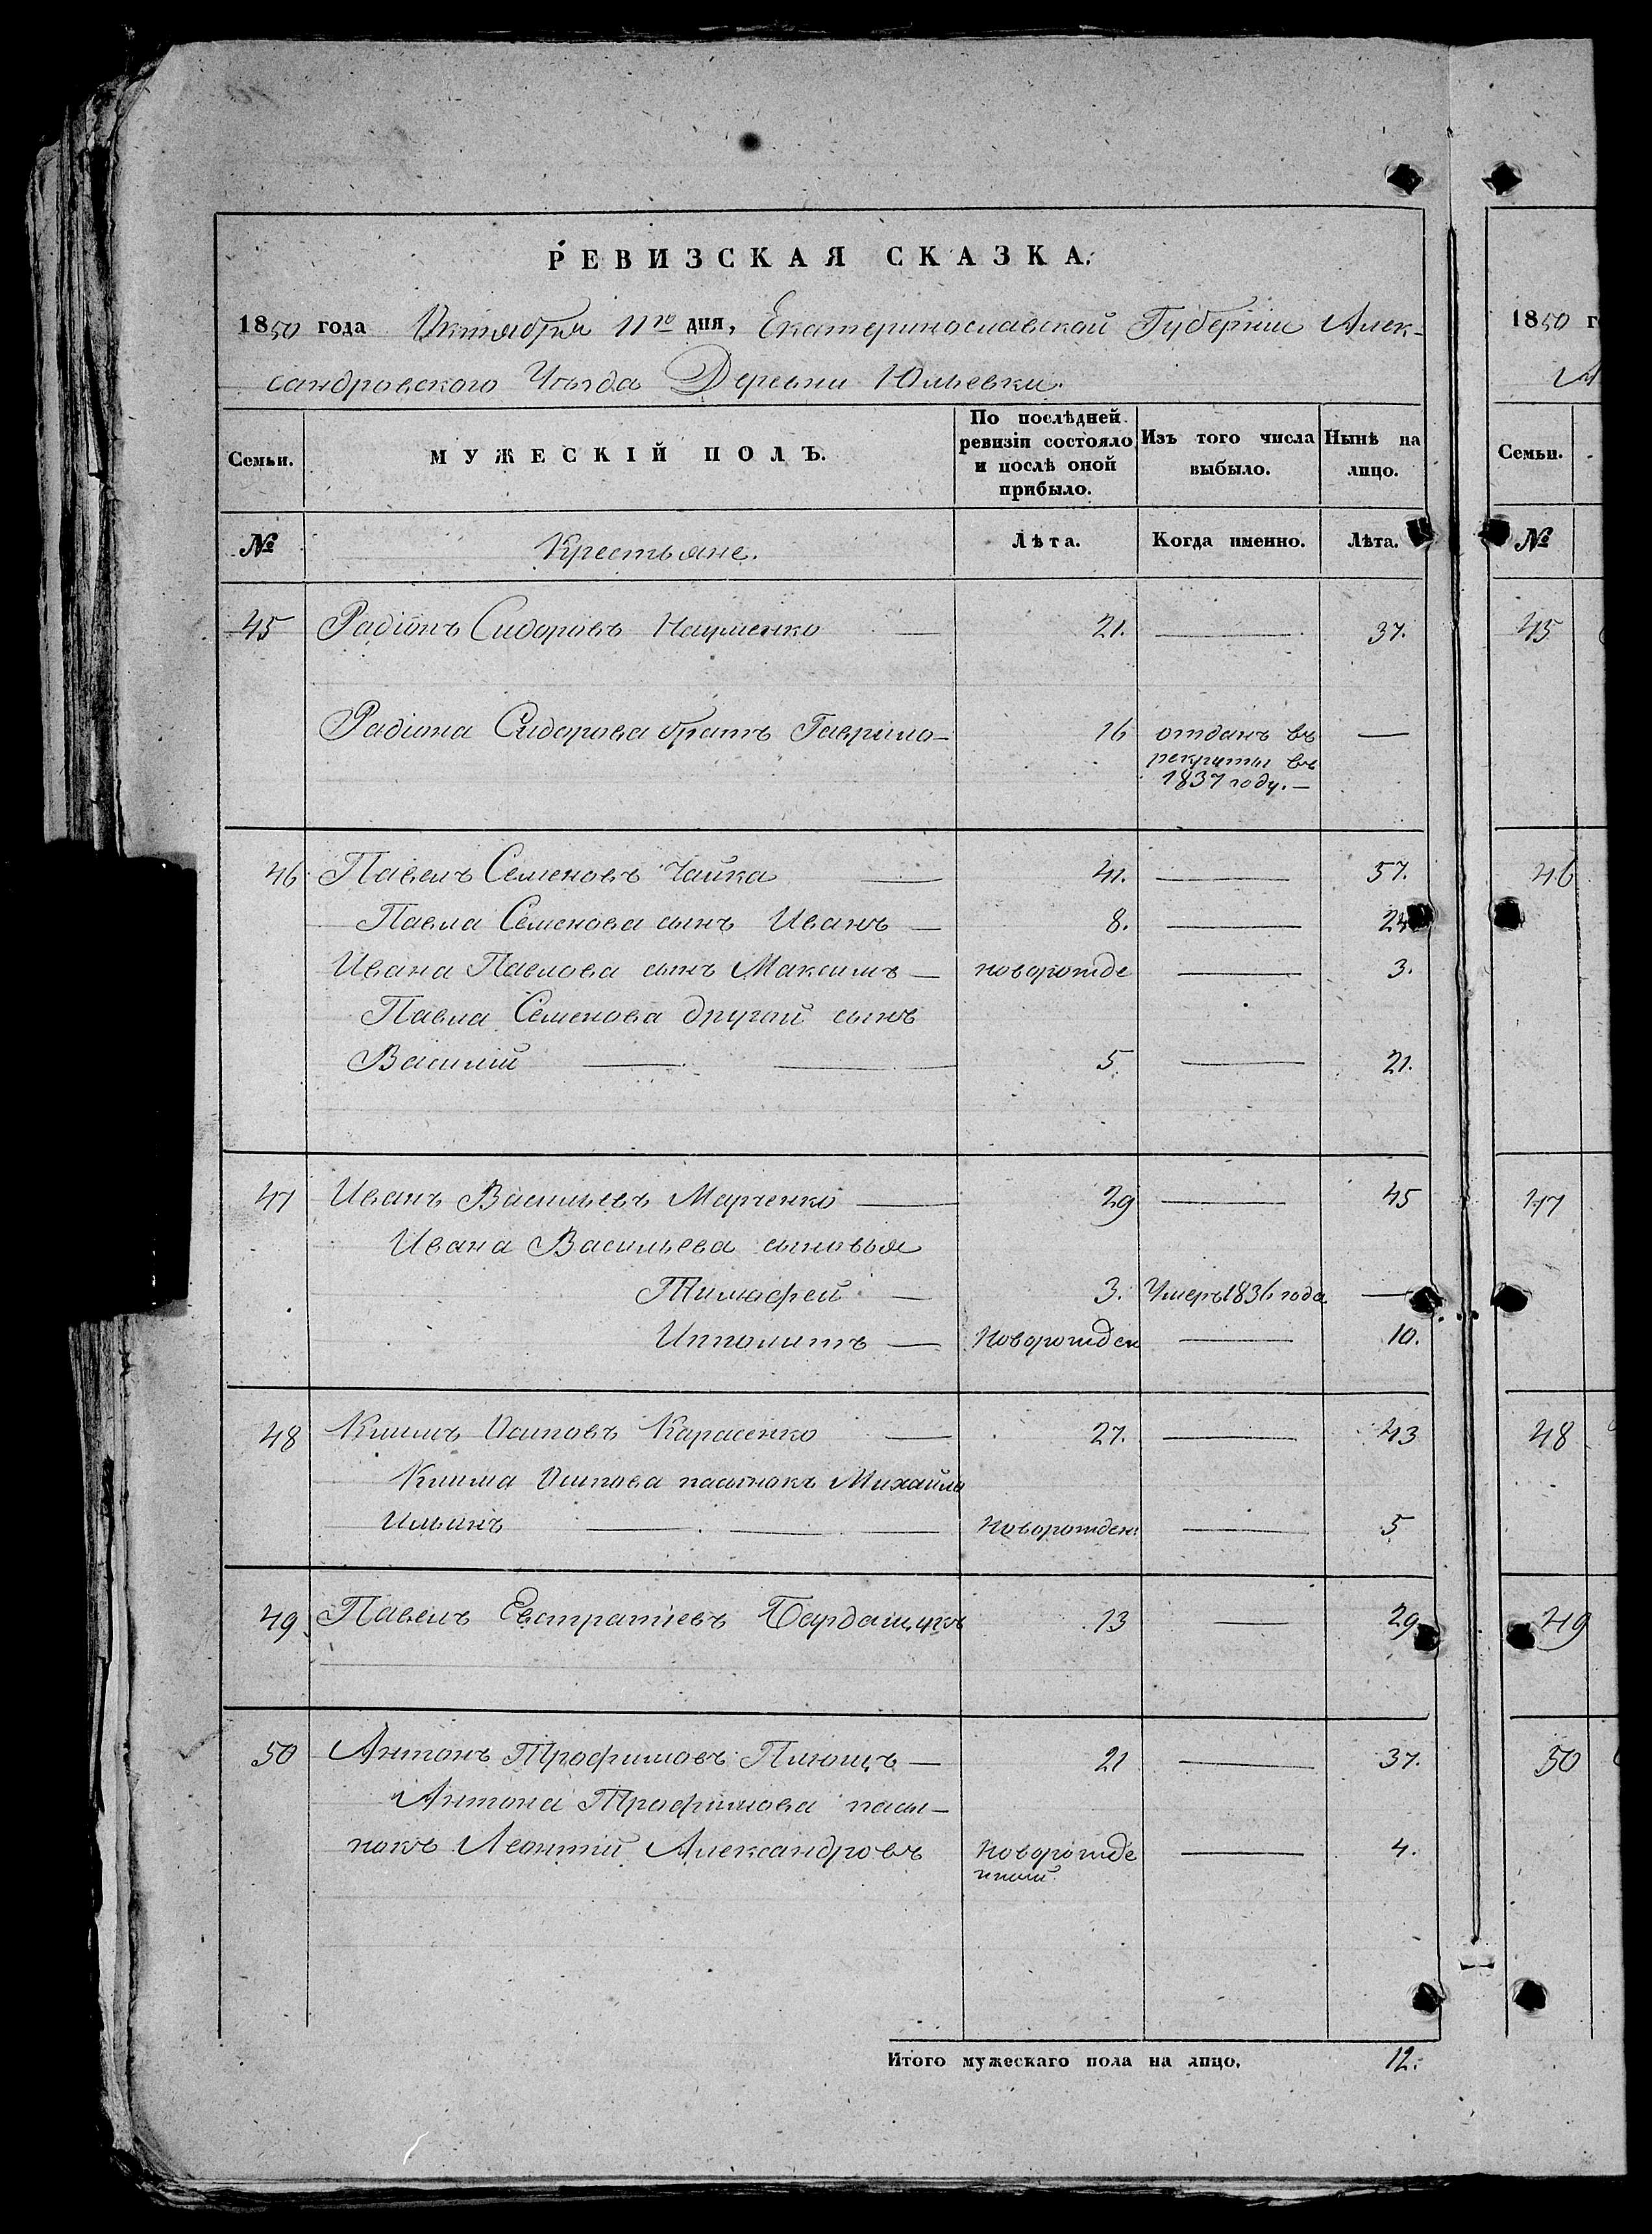 РЕВИЗСКАЯ СКАЗКА.
1850 года Октября 11го дня, Екатеринославской Губернии Алек-
сандровского Уезда Деревни Юльевки.
Семьи. МУЖЕСКІЙ ПОЛЪ. По послѣдней ревизіи состояло и послѣ оной прибыло. Изъ того числа выбыло. Нынѣ на лицо.
№ Крестьяне. Лѣта. Когда именно. Лѣта.
45 Радіонъ Сидоровъ Науменко — 21. — 37.
Радіона Сидорова братъ Гаврило — 16 отданъ въ —
рекруты въ
1837 году. —
46 Павелъ Семеновъ Чайка — 41. — 57.
Павла Семенова сынъ Иванъ — 8. — 24
Ивана Павлова сынъ Максимъ — новорожде — 3.
Павла Семенова другой сынъ
Василій — — 5. — 21.
47 Иванъ Васильевъ Марченко — 29 — 45
Ивана Васильева сыновья
Тимофей — 3. Умеръ 1836 года —
Ипполитъ — Новорожден — 10.
48 Климъ Осиповъ Карасенко — 27. — 43
Клима Осипова пасынокъ Михайло
Ильинъ — — — Новорожден: — 5
49 Павелъ Евстратіевъ 13 — 29
50 Антонъ Трофимовъ Плющъ — 21 — 37.
Антона Трофимова пасы-
нокъ Леонтій Александровъ Новорожде — 4.
нный.
Итого мужескаго пола на лицо. 12.
1850 г
А
Семьи.
№
45
46
47
48
49
50